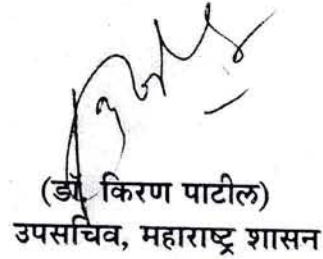 (डॉ. किरण पाटील)
उपसचिव, महाराष्ट्र शासन